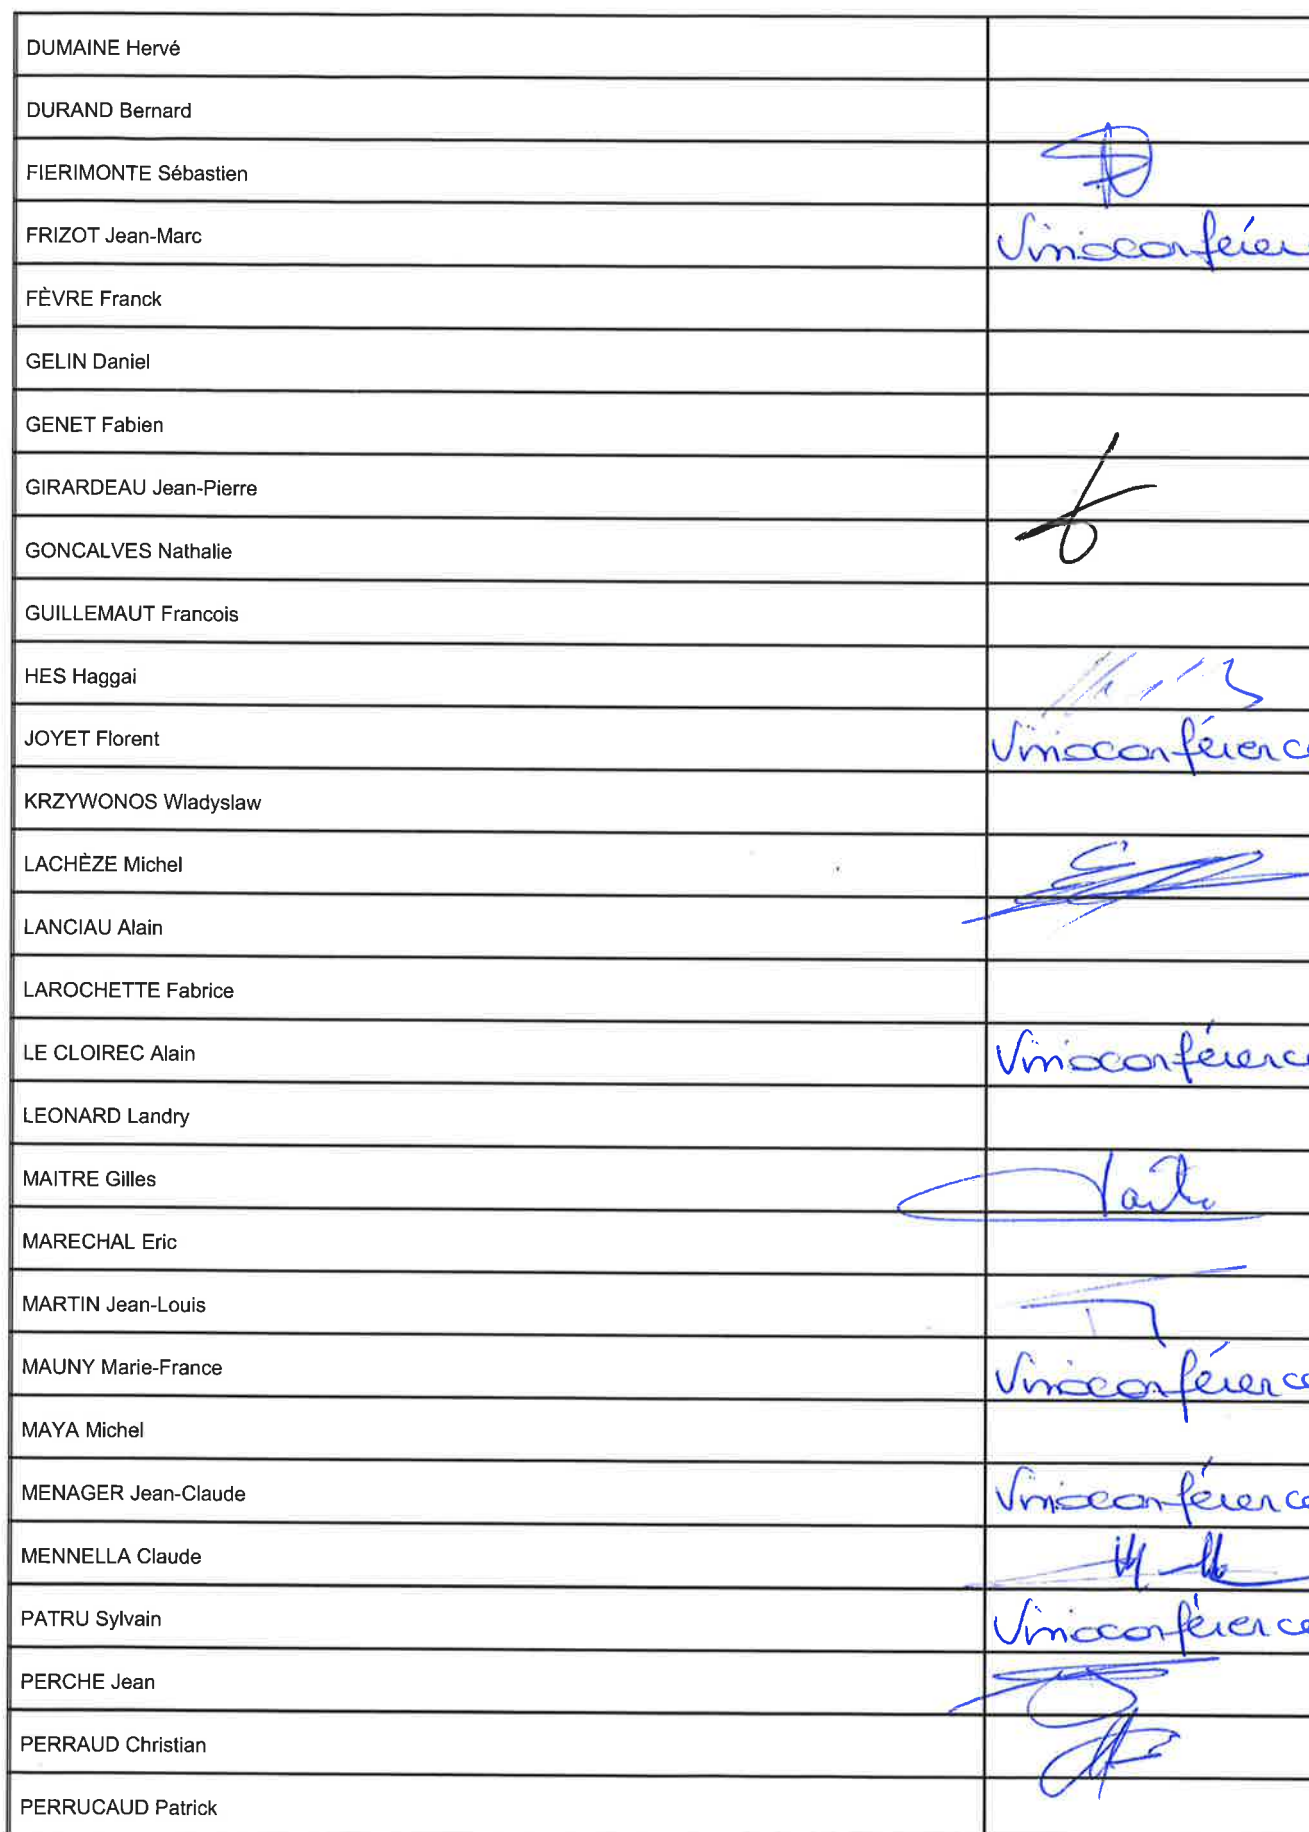 DUMAINE Hervé
DURAND Bernard
FIERIMONTE Sébastien
FRIZOT Jean-Marc Visioconféren
FÈVRE Franck
GELIN Daniel
GENET Fabien
GIRARDEAU Jean-Pierre
GONCALVES Nathalie
GUILLEMAUT Francois
HES Haggai
JOYET Florent Visioconférence
KRZYWONOS Wladyslaw
LACHÈZE Michel
LANCIAU Alain
LAROCHETTE Fabrice
LE CLOIREC Alain Visioconférence
LEONARD Landry
MAITRE Gilles
MARECHAL Eric
MARTIN Jean-Louis
MAUNY Marie-France Visioconférence
MAYA Michel
MENAGER Jean-Claude Visioconférence
MENNELLA Claude
PATRU Sylvain Visioconférence
PERCHE Jean
PERRAUD Christian
PERRUCAUD Patrick